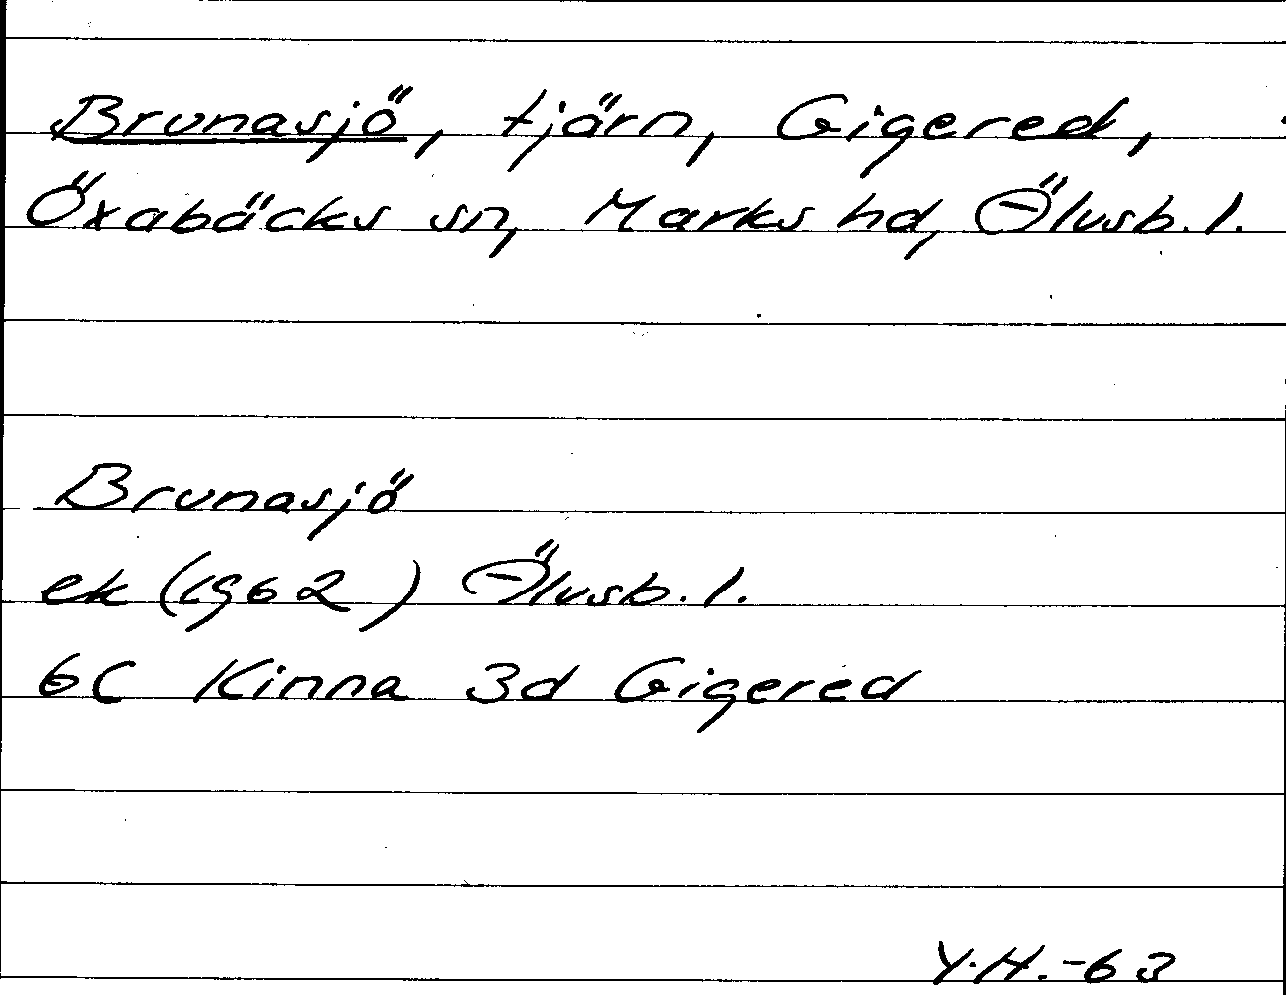 Brunasjö, tjärn, Gigered,
Öxabäcks sn, Marks hd, Älvsb. l.
Brunasjö
ek (1962) Älvsb. l.
6C Kinna 3d Gigered
Y.H.-63